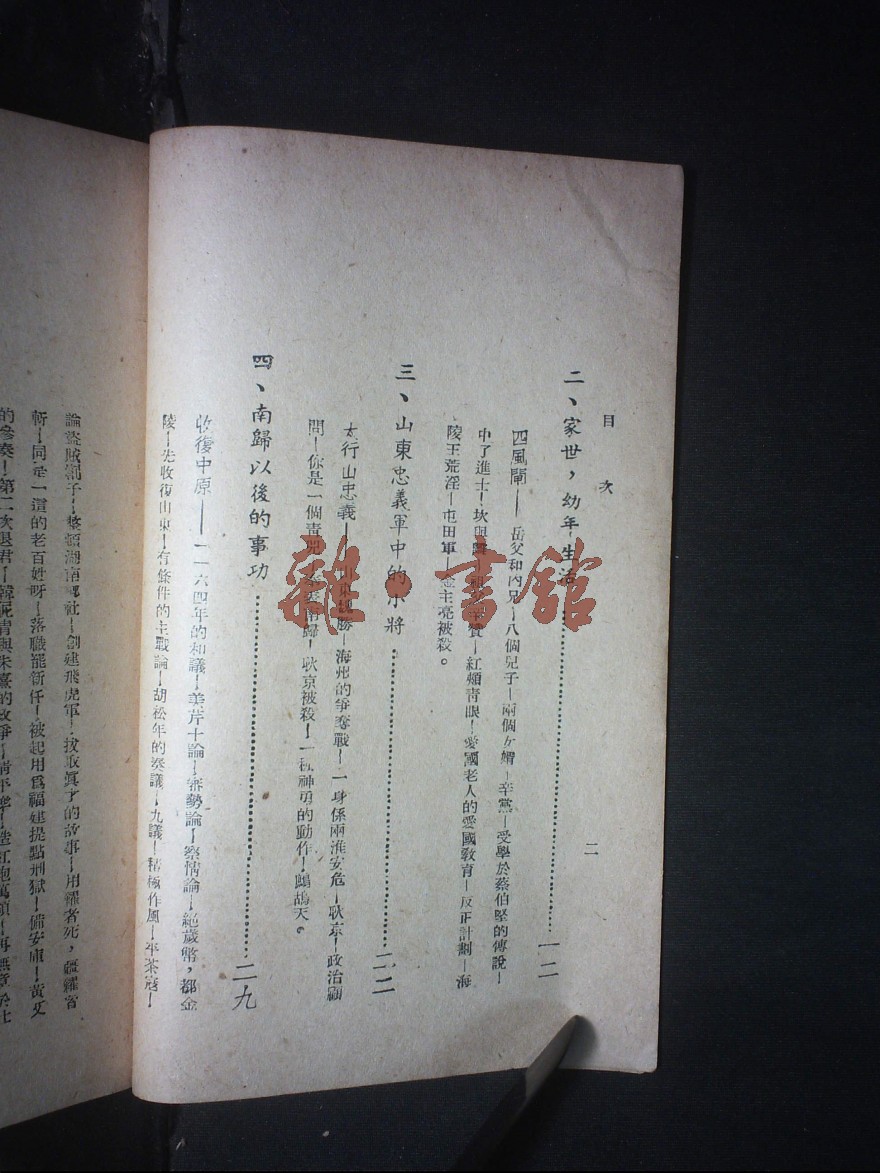 目次
二
二、家世，幼年生活……一二
四風閘——岳父和內兄—八個兒子—兩個女婿—辛黨—受學於蔡伯堅的傳說—
中了進士—坎與離—祖父辛贊—紅頰青眼—愛國老人的愛國教育—反正計劃—海
陵王荒淫—屯田軍—金主亮被殺。
三、山東忠義軍中的小將……二二
太行山忠義——勝—海州的爭奪戰—一身係兩淮安危—耿京—政治顧
問—你是一個青兕—奉表南歸—耿京被殺—一極神勇的動作—鷓鴣天。
四、南歸以後的事功……二九
收復中原——一一六四年的和議—美芹十論—審勢論—察情論—絕歲幣，都金
陵—先收復山東—有條件的主戰論—胡松年的奏議—九議—積極作風—平茶寇—
論盜賊劄子—整頓湖南鄉社—創建飛虎軍—用糴者死，彊糴者
斬—同是一道的老百姓呀—落職罷新任—被起用爲福建提點刑獄—備安庫—黃艾
的參奏—第二次退君—韓侂胄與朱熹的政爭
雜·書館